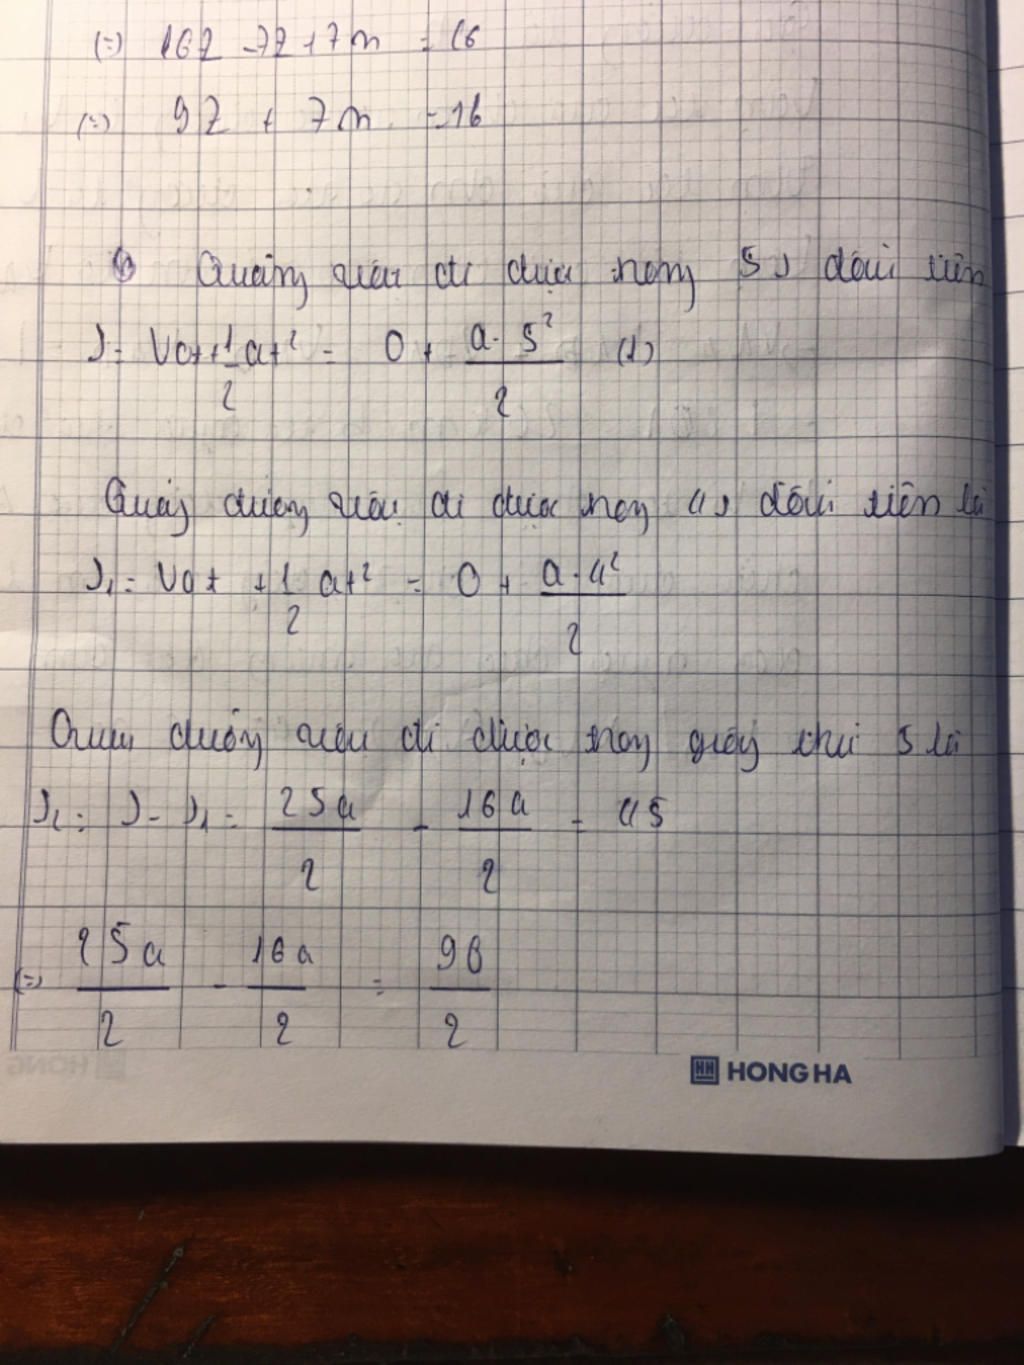 (=) 16Z - 7Z + 7n = 16
(=) 9Z + 7n = 16
Quãng đi được trong 5s đầu tiên
S = Vot + 1/2 at² = 0 + a.5²/2 (1)
Quãng đường đi được trong 4s đầu tiên là
S₁ = Vot + 1/2 at² = 0 + a.4²/2
đường đi được trong giây thứ 5 là
S₂ = S - S₁ = 25a/2 - 16a/2 = 45
(=) 25a/2 - 16a/2 = 90/2
HONG HA